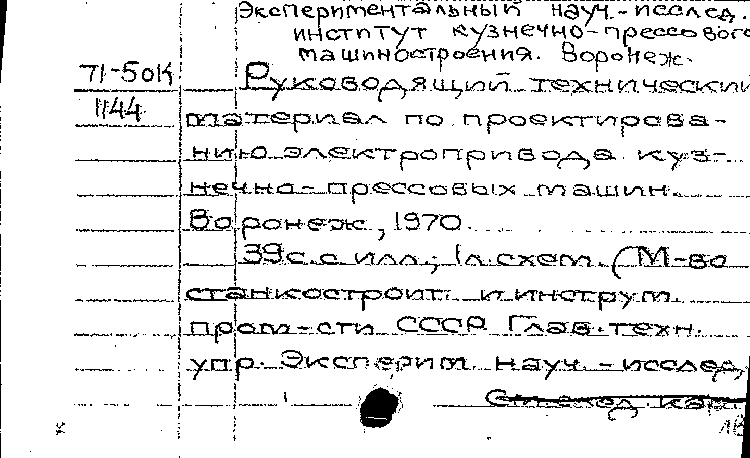 Экспериментальный науч.-исслед.
институт кузнечно-прессового
машиностроения. Воронеж.
71-50К Руководящий технический
1144 материал по проектирова-
нию электропривода куз-
нечно-прессовых машин.
Воронеж, 1970.
39с. с илл.; 1л. схем. (М-во
станкостроит. и инструм.
пром-сти СССР. Глав. техн.
упр. Эксперим. науч.-исслед.